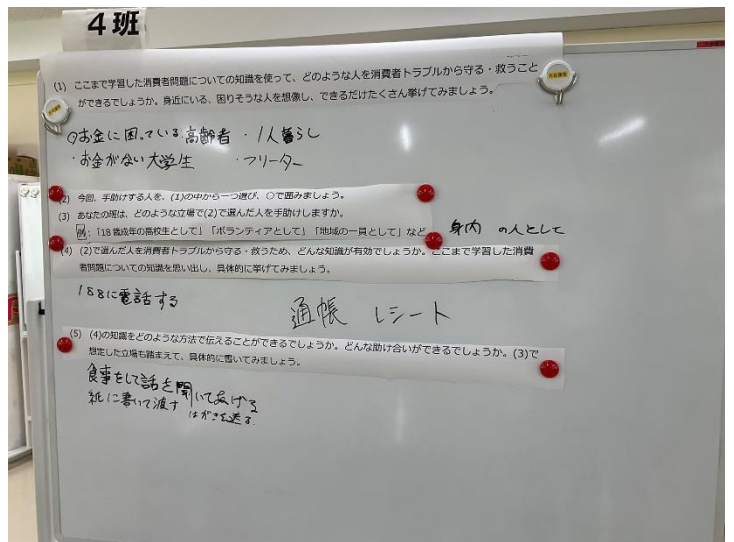 ４班
(1) ここまで学習した消費者問題についての知識を使って、どのような人を消費者トラブルから守る・救うこと
ができるでしょうか。身近にいる、困りそうな人を想像し、できるだけたくさん挙げてみましょう。
お金に困っている高齢者 ・1人暮らし
・お金がない大学生 ・フリーター
(2) 今回、手助けする人を、(1)の中から一つ選び、○で囲みましょう。
(3) あなたの班は、どのような立場で(2)で選んだ人を手助けしますか。
例：「18歳成年の高校生として」「ボランティアとして」「地域の一員として」など 身内 の人として
(4) (2)で選んだ人を消費者トラブルから守る・救うため、どんな知識が有効でしょうか。ここまで学習した消費
者問題についての知識を思い出し、具体的に挙げてみましょう。
188に電話する
通帳 レシート
(5) (4)の知識をどのような方法で伝えることができるでしょうか。どんな助け合いができるでしょうか。(3)で
想定した立場も踏まえて、具体的に書いてみましょう。
食事をして話を聞いてあげる
紙に書いて渡す はがきを送る